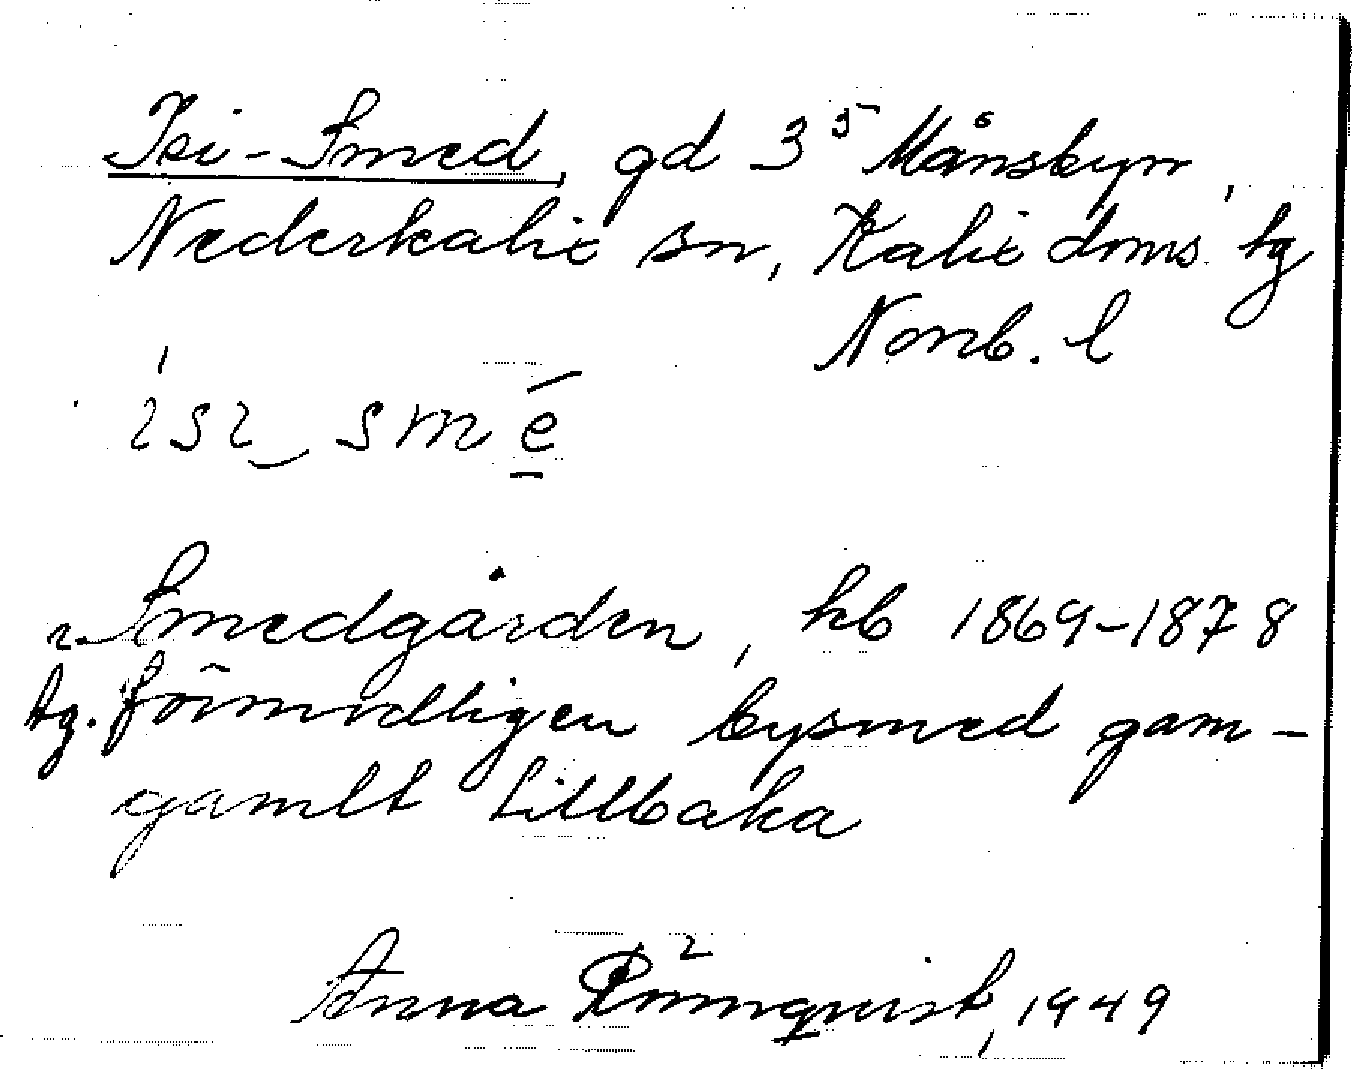 Isi-Smed, gd 3⁵ Månsbyn,
Nederkalix sn, Kalix doms. tg
Norrb. l
ísı smé
Smedgården, hb 1869-1878
tg. förmodligen bysmed gam-
gamlt tillbaka
Anna Rönnqvist, 1949